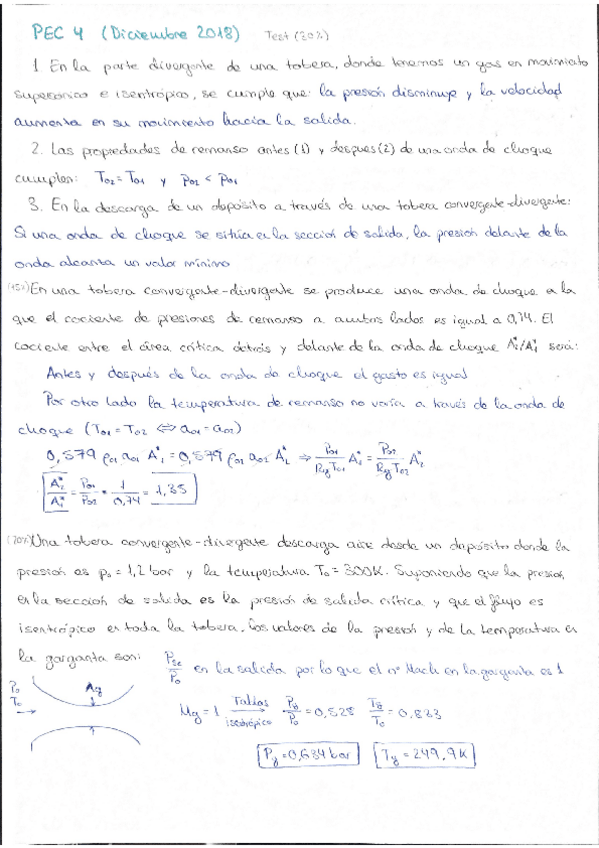 PEC 4 (Diciembre 2018) Test (30%)
1 En la parte divergente de una tobera, donde tenemos un gas en movimiento
supersónico e isentrópico, se cumple que: la presión disminuye y la velocidad
aumenta en su movimiento hacia la salida.
2. Las propiedades de remanso antes (1) y despues (2) de una onda de choque
cumplen: To2 = To1 y po2 < po1
3. En la descarga de un depósito a través de una tobera convergente-divergente:
Si una onda de choque se sitúa en la sección de salida, la presión delante de la
onda alcanza un valor mínimo
En una tobera convergente-divergente se produce una onda de choque en la
que el cociente de presiones de remanso a ambos lados es igual a 0,74. El
cociente entre el área crítica detrás y delante de la onda de choque A2*/A1* será:
Antes y después de la onda de choque el gasto es igual
Por otro lado la temperatura de remanso no varía a través de la onda de
choque (To1 = To2 ⇔ ao1 = ao2)
0,579 ρo1 ao1 A1* = 0,579 ρo2 ao2 A2* ⇒ Po1/RgTo1 A1* = Po2/RgTo2 A2*
A2*/A1* = Po1/Po2 = 1/0,74 = 1,35
Una tobera convergente-divergente descarga aire desde un depósito donde la
presión es po = 1,2 bar y la temperatura To = 300K. Suponiendo que la presión
en la sección de salida es la presión de salida crítica y que el flujo es
isentrópico en toda la tobera, los valores de la presión y de la temperatura en
la garganta son: Psc/Po en la salida por lo que el nº Mach en la garganta es 1
Po
To
Ag
Mg = 1 Tablas isentrópico Pg/Po = 0,528 Tg/To = 0,833
Pg = 0,634 bar Tg = 249,9 K